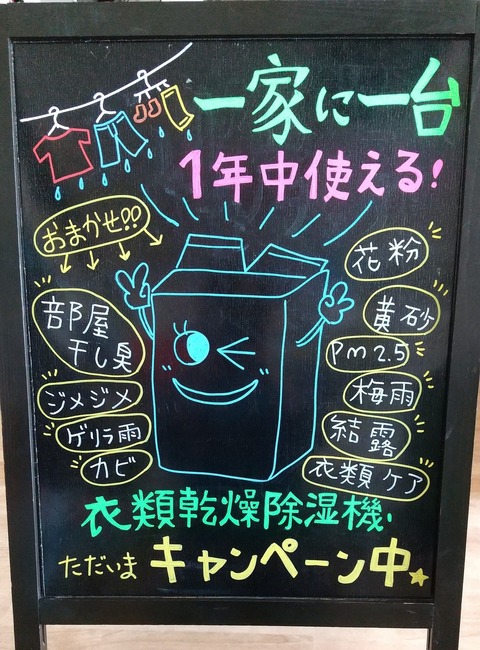 一家に一台
1年中使える!
おまかせ!!
部屋
干し臭
ジメジメ
ゲリラ雨
カビ
花粉
黄砂
PM 2.5
梅雨
結露
衣類ケア
衣類乾燥除湿機
ただいま キャンペーン中